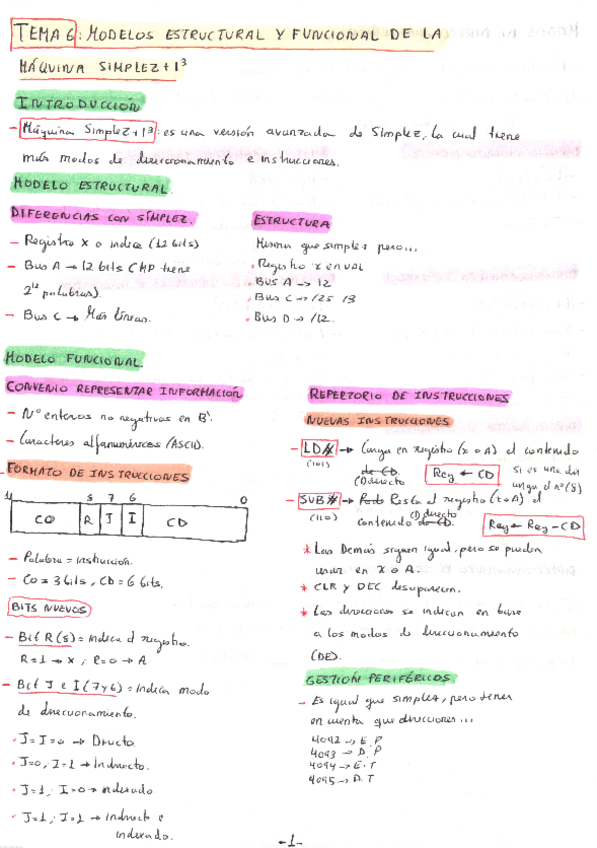 TEMA 6: MODELOS ESTRUCTURAL Y FUNCIONAL DE LA
MÁQUINA SIMPLEZ+I³
INTRODUCCIÓN
- Máquina Simplez+I³: es una versión avanzada de Simplez, la cual tiene
más modos de direccionamiento e instrucciones.
MODELO ESTRUCTURAL.
DIFERENCIAS CON SIMPLEZ.
- Registro X o índice (12 bits)
- Bus A → 12 bits CMP tiene
2¹² palabras).
- Bus C → Más líneas.
ESTRUCTURA
Misma que simplez pero...
· Registro X en UAL
· BUS A → 12
· BUS C → 125 13
· BUS D → 12.
MODELO FUNCIONAL.
CONVENIO REPRESENTAR INFORMACIÓN
- Nº enteros no negativos en B'.
- Caracteres alfanuméricos (ASCII).
FORMATO DE INSTRUCCIONES
11 8 7 6 0
CO R I I CD
- Palabra = instrucción.
- CO = 3 bits, CD = 6 bits.
BITS NUEVOS
- Bit R (8) = indica el registro.
R=1 → X, R=0 → A
- Bit J e I (7 y 6) = Indican modo
de direccionamiento.
· J=I=0 → Directo.
· J=0, I=1 → Indirecto.
· J=1; I=0 → indexado.
· J=1; I=1 → indirecto e
indexado.
REPERTORIO DE INSTRUCCIONES
NUEVAS INSTRUCCIONES
- LD# → Carga en registro (X o A) el contenido
(101) de CD. Reg ← CD
CD directo
- SUB# → Resta al registro (X o A) el
(110) contenido de CD. CD directo Reg ← Reg - CD
* Las Demás siguen igual, pero se pueden
usar en X o A.
* CLR y DEC desaparecen.
* Las direcciones se indican en base
a los modos de direccionamiento
(DE).
GESTIÓN PERIFÉRICOS
- Es igual que simplez, pero tener
en cuenta que direcciones...
4092 → E.P
4093 → D.P
4094 → E.T
4095 → D.T
-1-